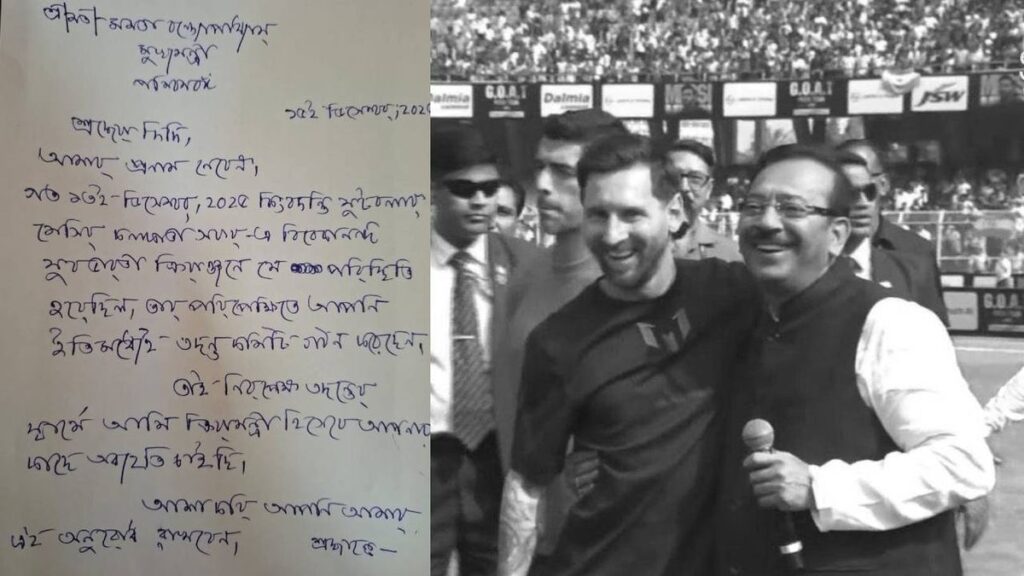 শ্রীমতী মমতা বন্দ্যোপাধ্যায়
মুখ্যমন্ত্রী
পশ্চিমবঙ্গ
১৫ই ডিসেম্বর, ২০২৫
শ্রদ্ধেয় দিদি,
আমার প্রণাম নেবেন,
গত ১৩ই ডিসেম্বর, ২০২৫ কিংবদন্তি ফুটবলার
মেসির কলকাতা সফর-এ বিবেকানন্দ
যুবভারতী ক্রীড়াঙ্গনে যে পরিস্থিতি
হয়েছিল, তার পরিপ্রেক্ষিতে আপনি
ইতিমধ্যেই তদন্ত কমিটি গঠন করেছেন,
তাই নিরপেক্ষ তদন্তের
স্বার্থে আমি ক্রীড়ামন্ত্রী হিসেবে আপনার
কাছে অব্যাহতি চাইছি,
আশা করি আপনি আমার
এই অনুরোধ রাখবেন, শ্রদ্ধান্তে—
Dalmia
G.O.A.T
Dalmia
MESSI
G.O.A.T
JSW
G.O.A.T